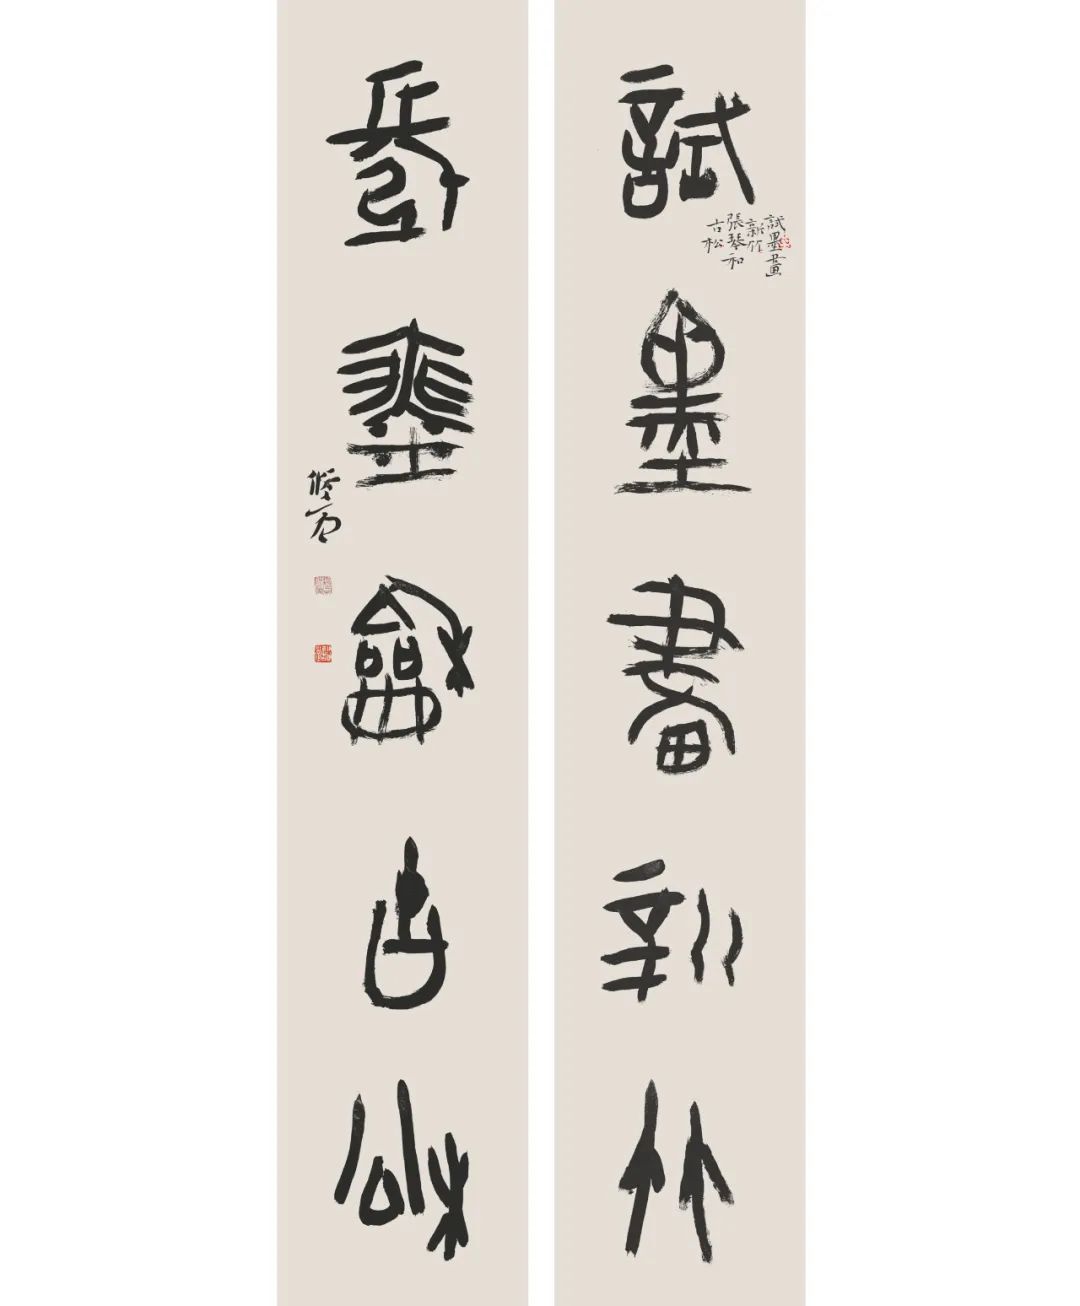 試墨畫新竹
試墨畫
新竹
張琴和
古松
張琴和古松